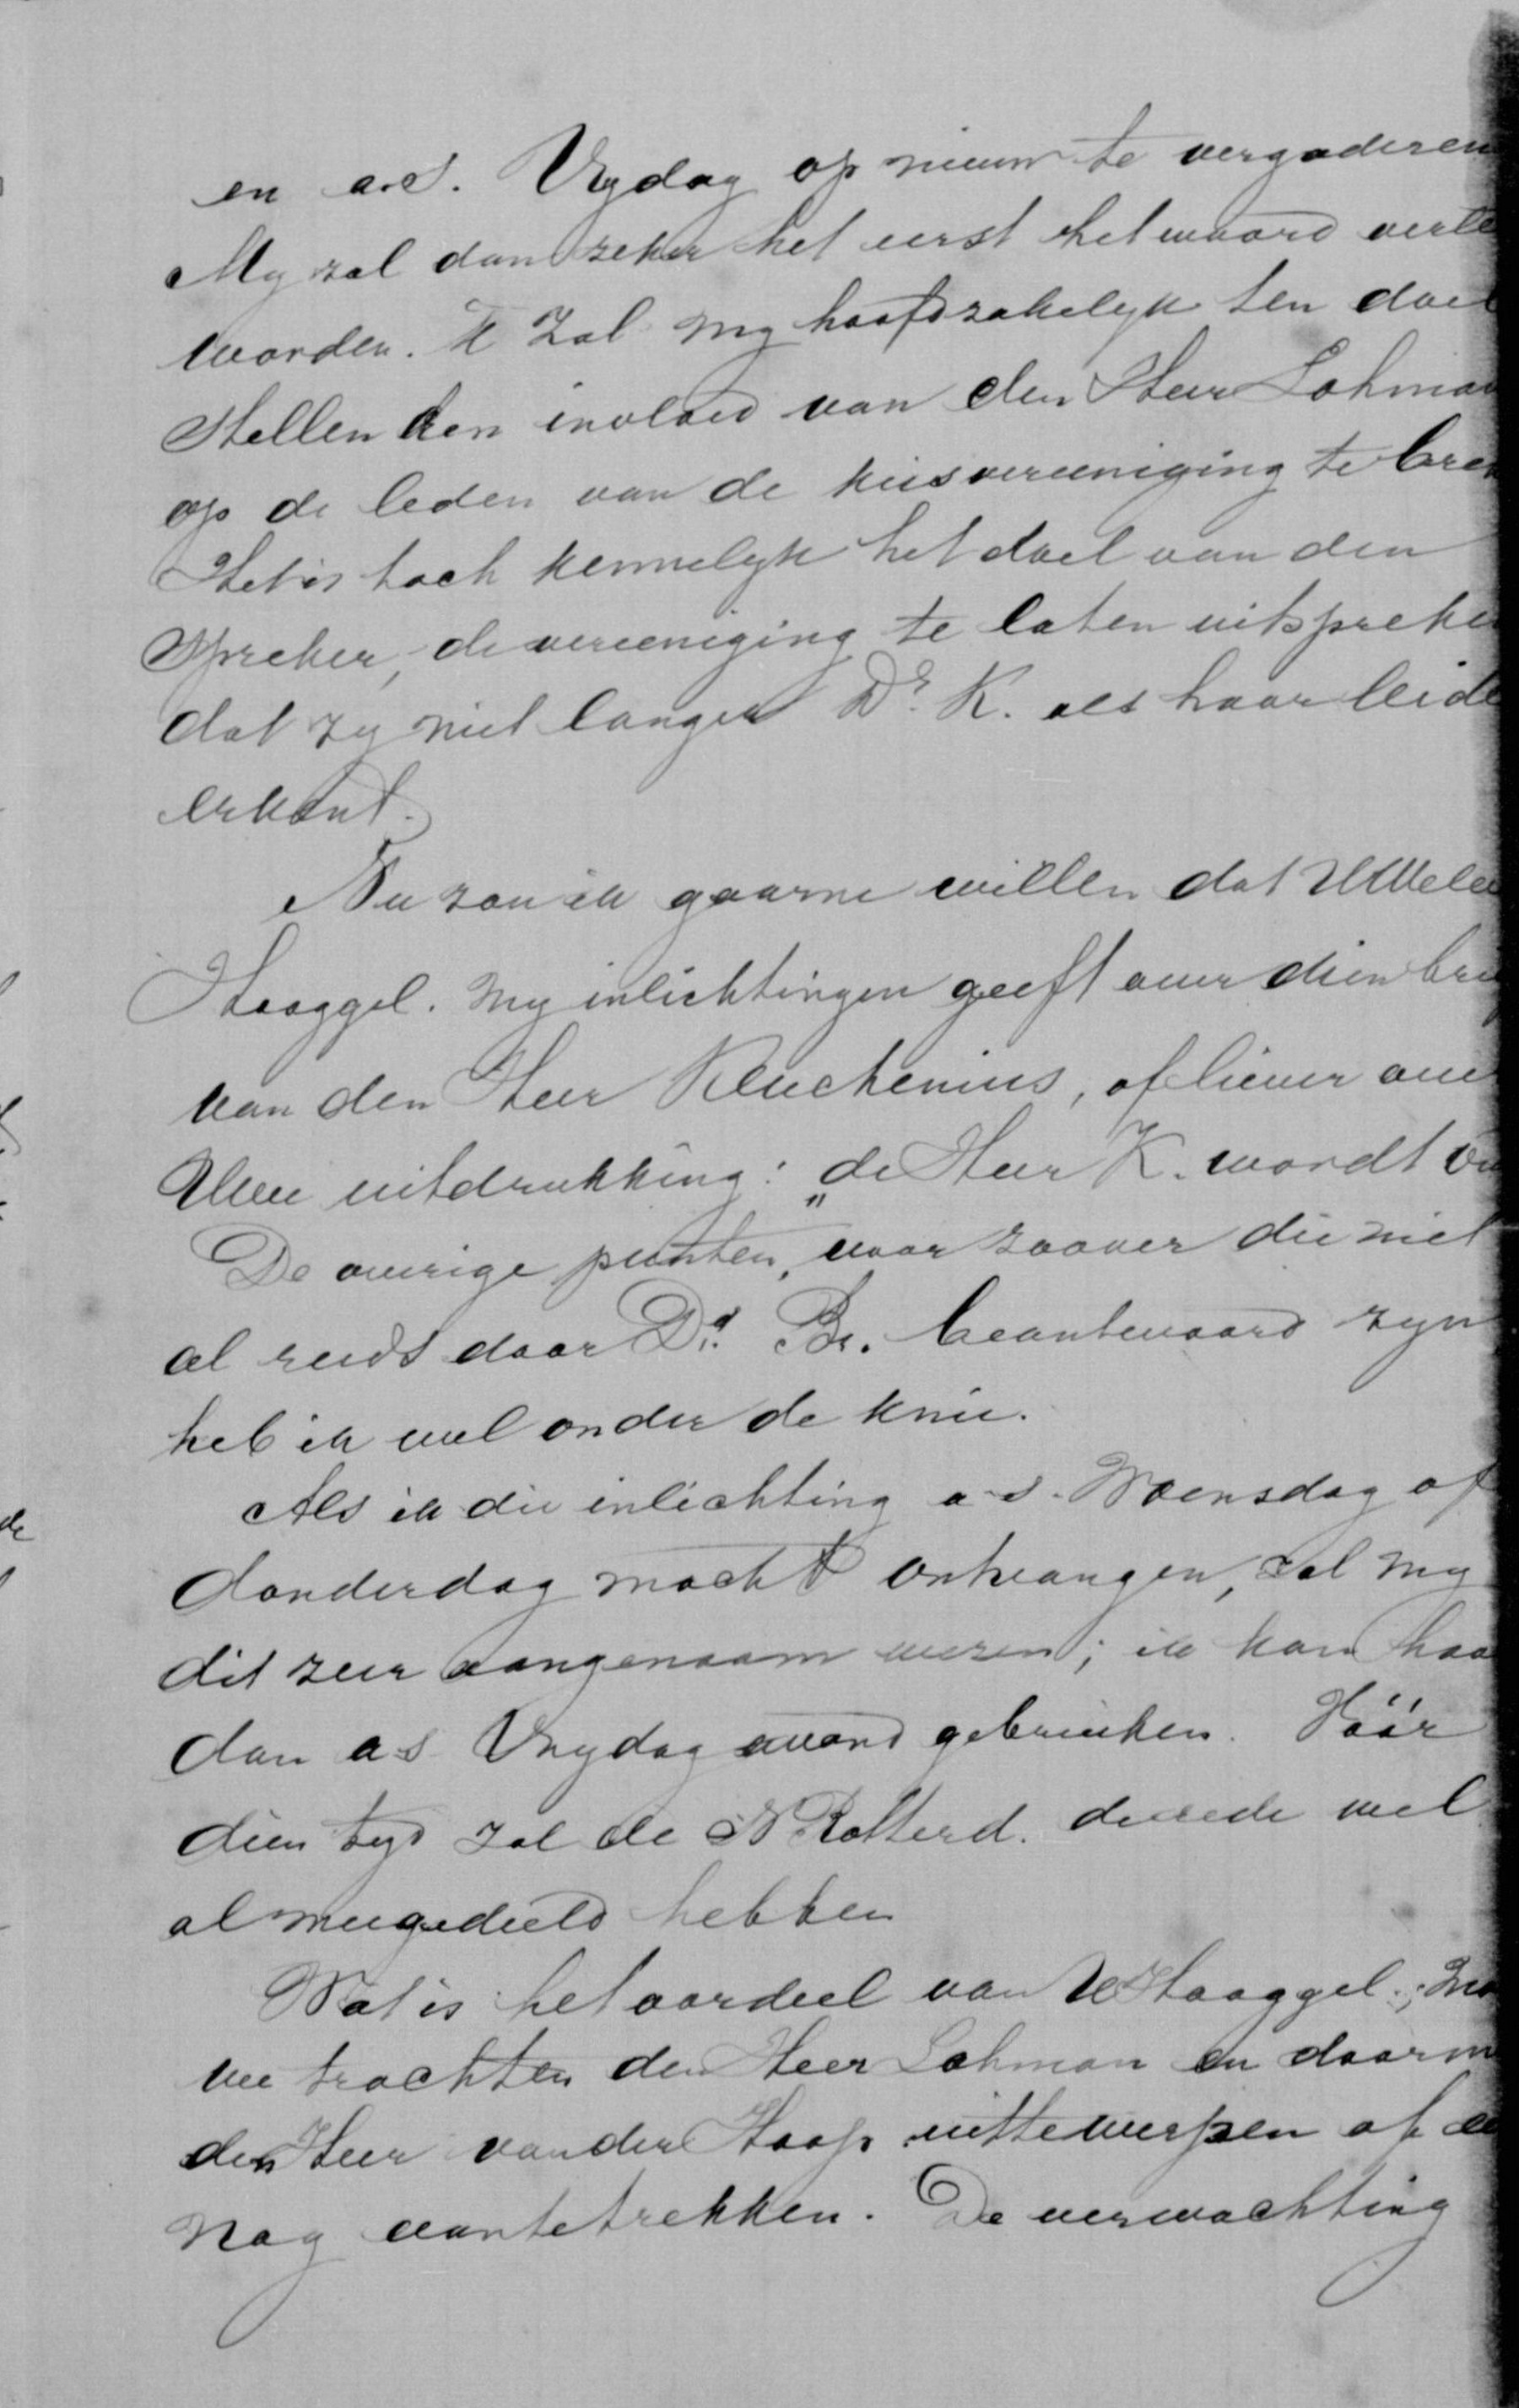 en a.s. Vrydag op nieuw te vergaderen
My zal dan zeker het eerst het woord verle
worden. Ik zal my hoofdzakelyk ten doel
stellen den invloed van den Heer Lohman
op de leden van de kiesvereeniging te bre
Het is toch kennelyk het doel van den
Spreker, de vereeniging te laten uitspreken
dat zy niet langer Dr. K. als haar leide
erkent.
Nu zou ik gaarne willen dat UWelEe
Hooggel. my inlichtingen geeft over dien brie
van den Heer Keuchenius, of liever over
Uwe uitdrukking: „de Heer K. wordt
De overige punten, voor zoover die niet
al reeds door Ds. Br. beantwoord zyn
heb ik wel onder de knie.
Als ik die inlichting a.s. Woensdag of
donderdag mocht ontvangen, zal my
dit zeer aangenaam wezen; ik kan haar
dan a.s. Vrydag avond gebruiken. Vóór
dien tyd zal de N Rotterd. de rede wel
al meegedeeld hebben
Wat is het oordeel van U Hooggel.; mo
we trachten den Heer Lohman en daarm
den Heer van der Hoop uittewerpen of
nog aantetrekken. De verwachting